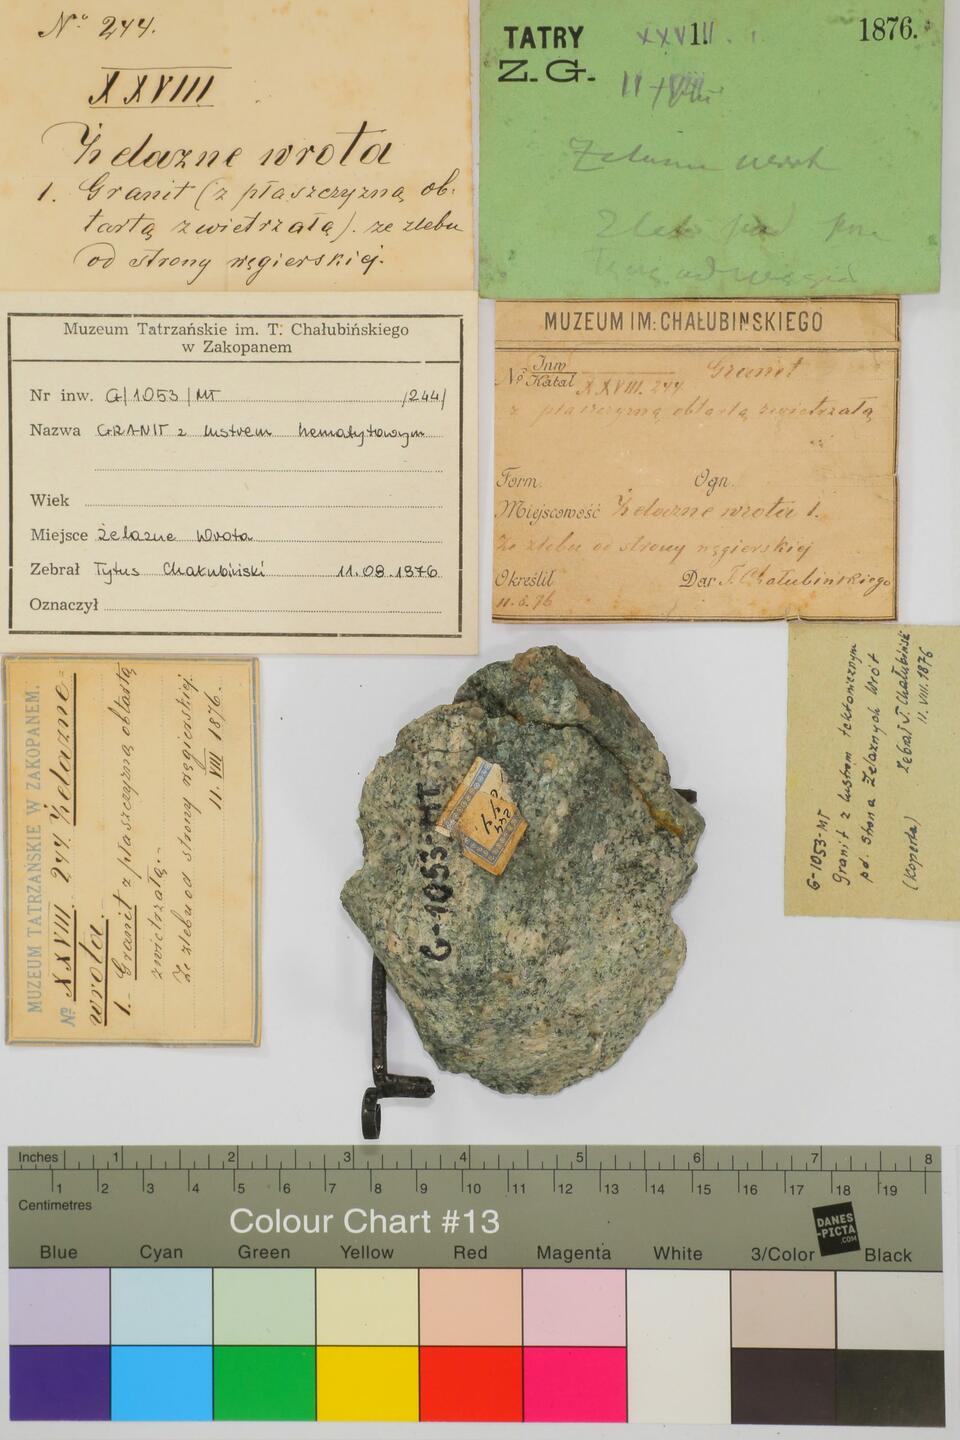 No 244.
XXVIII
Żelazne wrota
1. Granit (z płaszczyzną ob-
tartą zwietrzałą). ze żlebu
od strony węgierskiej.
TATRY
Z. G.
XXVIII.
1876.
Żelazne
Żleb pod
Muzeum Tatrzańskie im. T. Chałubińskiego
w Zakopanem
Nr inw. G/1053/MT /244/
Nazwa GRANIT z lustrem hematytowym
Wiek
Miejsce Żelazne Wrota
Zebrał Tytus Chałubiński 11.08.1876
Oznaczył
MUZEUM IM: CHAŁUBINSKIEGO
No Inw Katal XXVIII. 244 Granit
z płaszczyzną obtartą zwietrzałą
Form. Ogn.
Miejscowość Żelazne wrota 1.
Ze żlebu od strony węgierskiej
Określił Dar T. Chałubińskiego
11.8.76
MUZEUM TATRZAŃSKIE W ZAKOPANEM.
No XXVIII 244 Żelazne
wrota.
1.- Granit z płaszczyzną obtartą
zwietrzałą.-
Ze żlebu od strony węgierskiej.
11. VIII 1876.
G-1053-MT
Granit z lustrem tektonicznym
pd. strona Żelaznych Wrót
zebrał T. Chałubiński
11. VIII. 1876
(Koperta)
G-1053-MT
244
Inches 1 2 3 4 5 6 7 8
1 2 3 4 5 6 7 8 9 10 11 12 13 14 15 16 17 18 19
Centimetres
Colour Chart #13
DANES
-PICTA
.COM
Blue Cyan Green Yellow Red Magenta White 3/Color Black